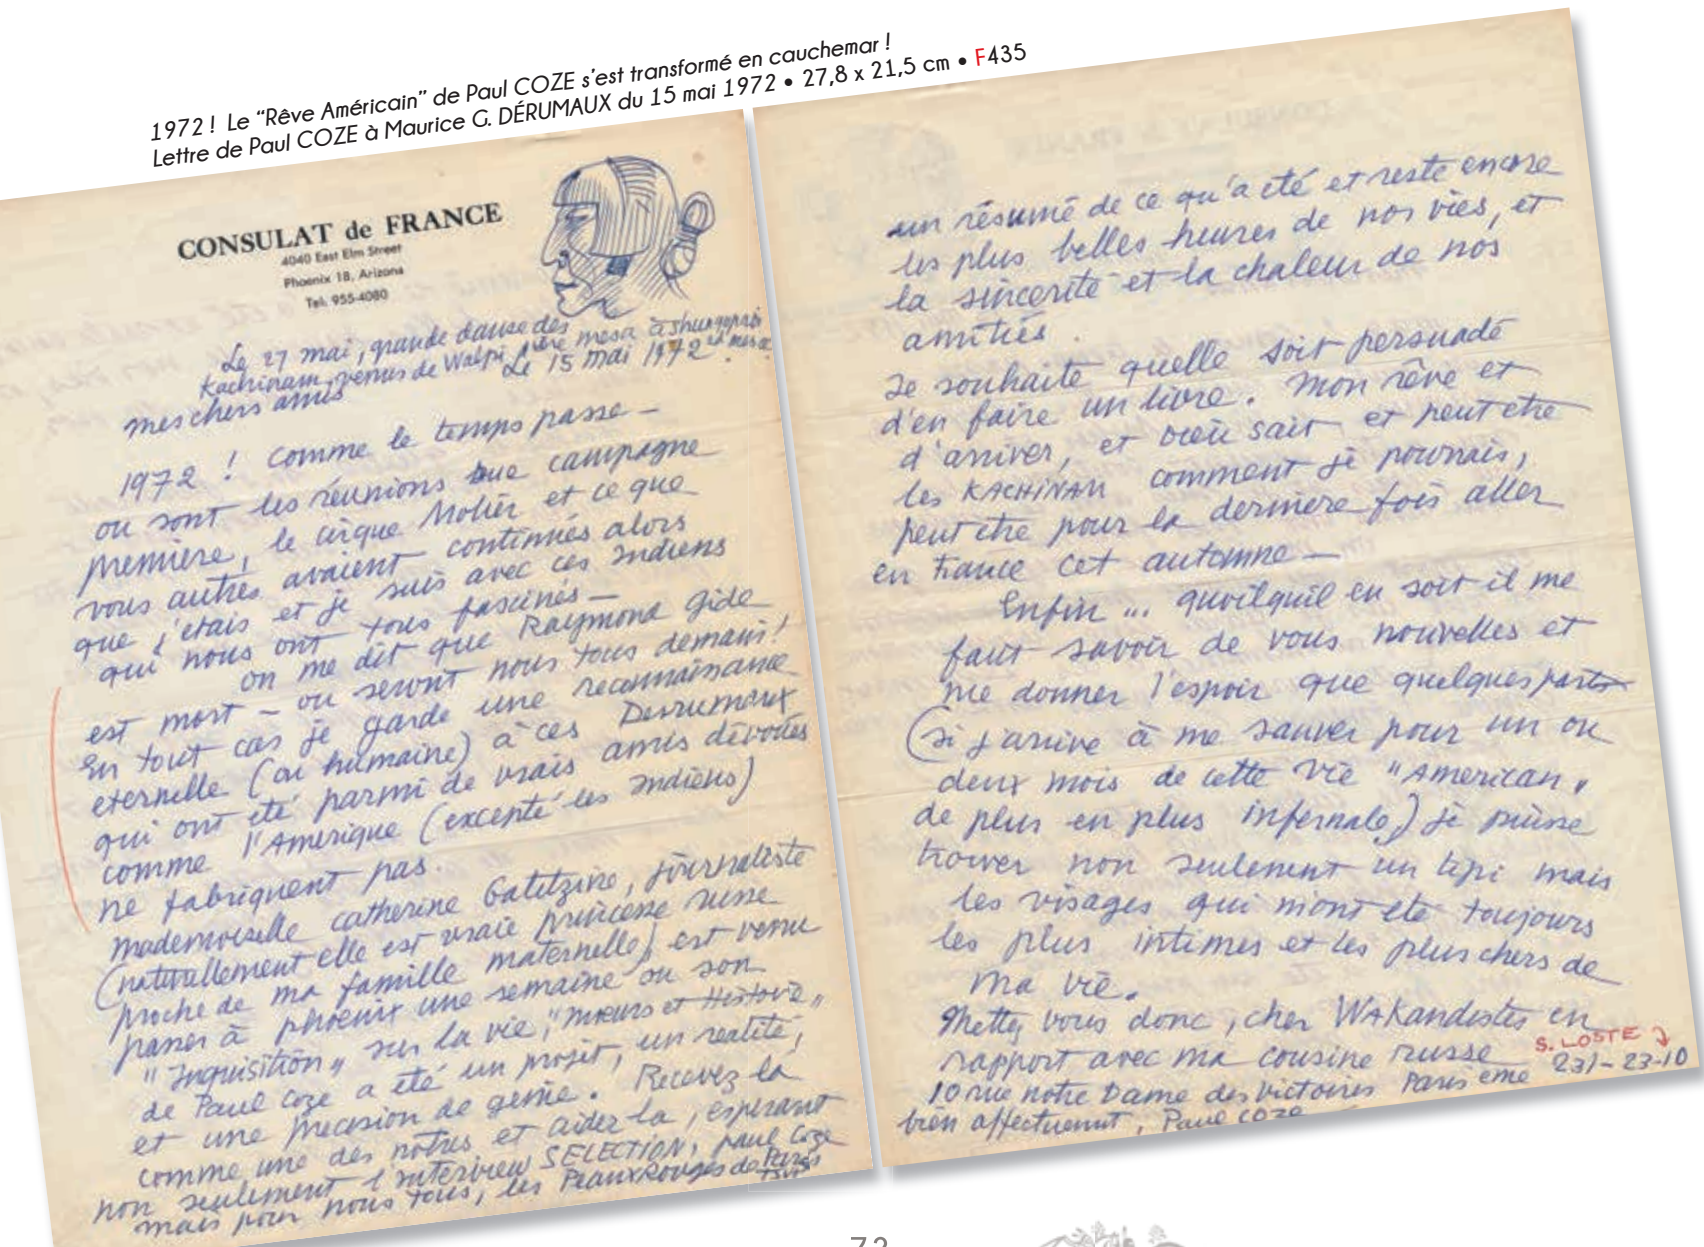 1972 ! Le “Rêve Américain” de Paul COZE s’est transformé en cauchemar !
Lettre de Paul COZE à Maurice G. DÉRUMAUX du 15 mai 1972 • 27,8 x 21,5 cm • F435
CONSULAT de FRANCE
4040 East Elm Street
Phoenix 18, Arizona
Tel. 955-4080
Le 27 mai, grande danse des
Kachinam, venus de Walpi 1ère mesa à
Le 15 mai 1972
mes chers amis
1972 ! Comme le temps passe —
ou sont les réunions rue campagne
première, le cirque Molier et ce que
vous autres avaient continués alors
que j'etais et je suis avec ces Indiens
qui nous ont tous fascinés —
on me dit que Raymond Gide
est mort — ou seront nous tous demain !
En tout cas je garde une reconnaissance
eternelle (ou humaine) à ces Derrumaux
qui ont été parmi de vrais amis dévoués
comme l'Amerique (excepté les Indiens)
ne fabriquent pas.
mademoiselle catherine Galitzine, journaliste
(naturellement elle est vraie princesse russe
proche de ma famille maternelle) est venu
passer à phoenix une semaine ou son
"Inquisition" sur la vie, "mœurs et Histoire"
de Paul Coze a été un projet, un realité,
et une precision de genie. Recevez la
comme une des nôtres et aidez la, esperant
non seulement l'interview SELECTION, paul Coze
mais pour nous tous, les Peaux Rouges de Paris
un résumé de ce qu'a eté et reste encore
les plus belles heures de nos vies, et
la sincerité et la chaleur de nos
amitiés.
Je souhaite quelle soit persuadé
d'en faire un livre. Mon rêve et
d'arriver, et dieu sait et peut etre
les KACHINAM comment je pourrais,
peut etre pour la derniere fois aller
en France cet automne —
Enfin ... quoilquil en soit il me
faut savoir de vous nouvelles et
me donner l'espoir que quelques parts
(si j'arrive à me sauver pour un ou
deux mois de cette vie "American"
de plus en plus infernale) je puisse
trouver non seulement un tipi mais
les visages qui m'ont eté toujours
les plus intimes et les plus chers de
ma vie.
Mettez vous donc, cher WAKandistes en
rapport avec ma cousine russe
S. LOSTE
10 rue notre Dame des victoires Paris eme 231-23-10
bien affectuemnt, Paul COZE
73